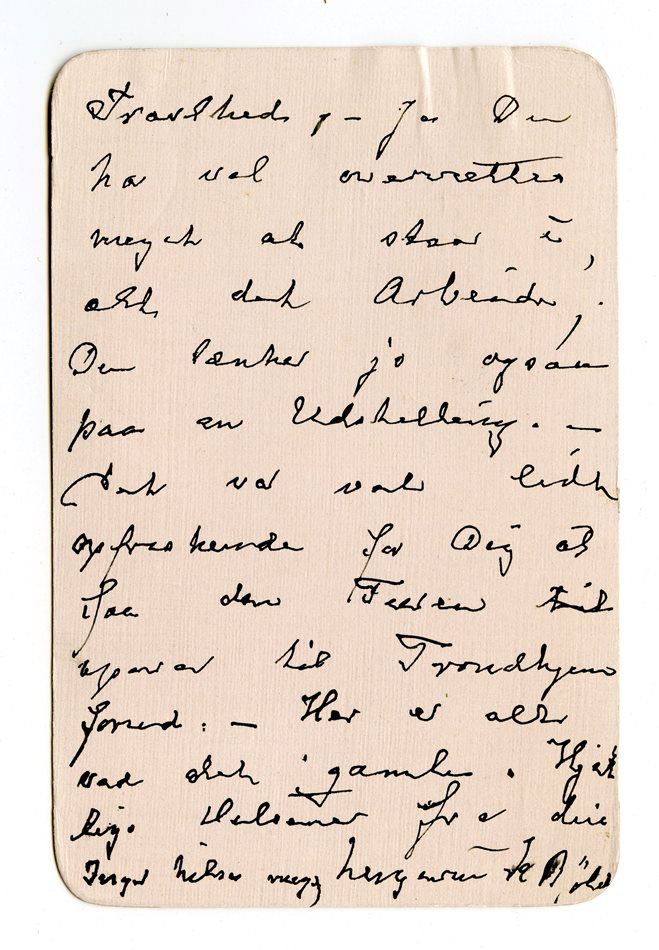 Travlhed, – Ja Du
har vel overvættes
meget at staa i,
alt det Arbeide,
Du tænker jo ogsaa
paa en Udstilling. –
Det var vel lidt
opfriskende for Dig at
faa den Turen
opover til Trondhjem
forud. – Her er alt
ved det gamle. Hjærte
lige Hilsener fra din
Inger hilser meget